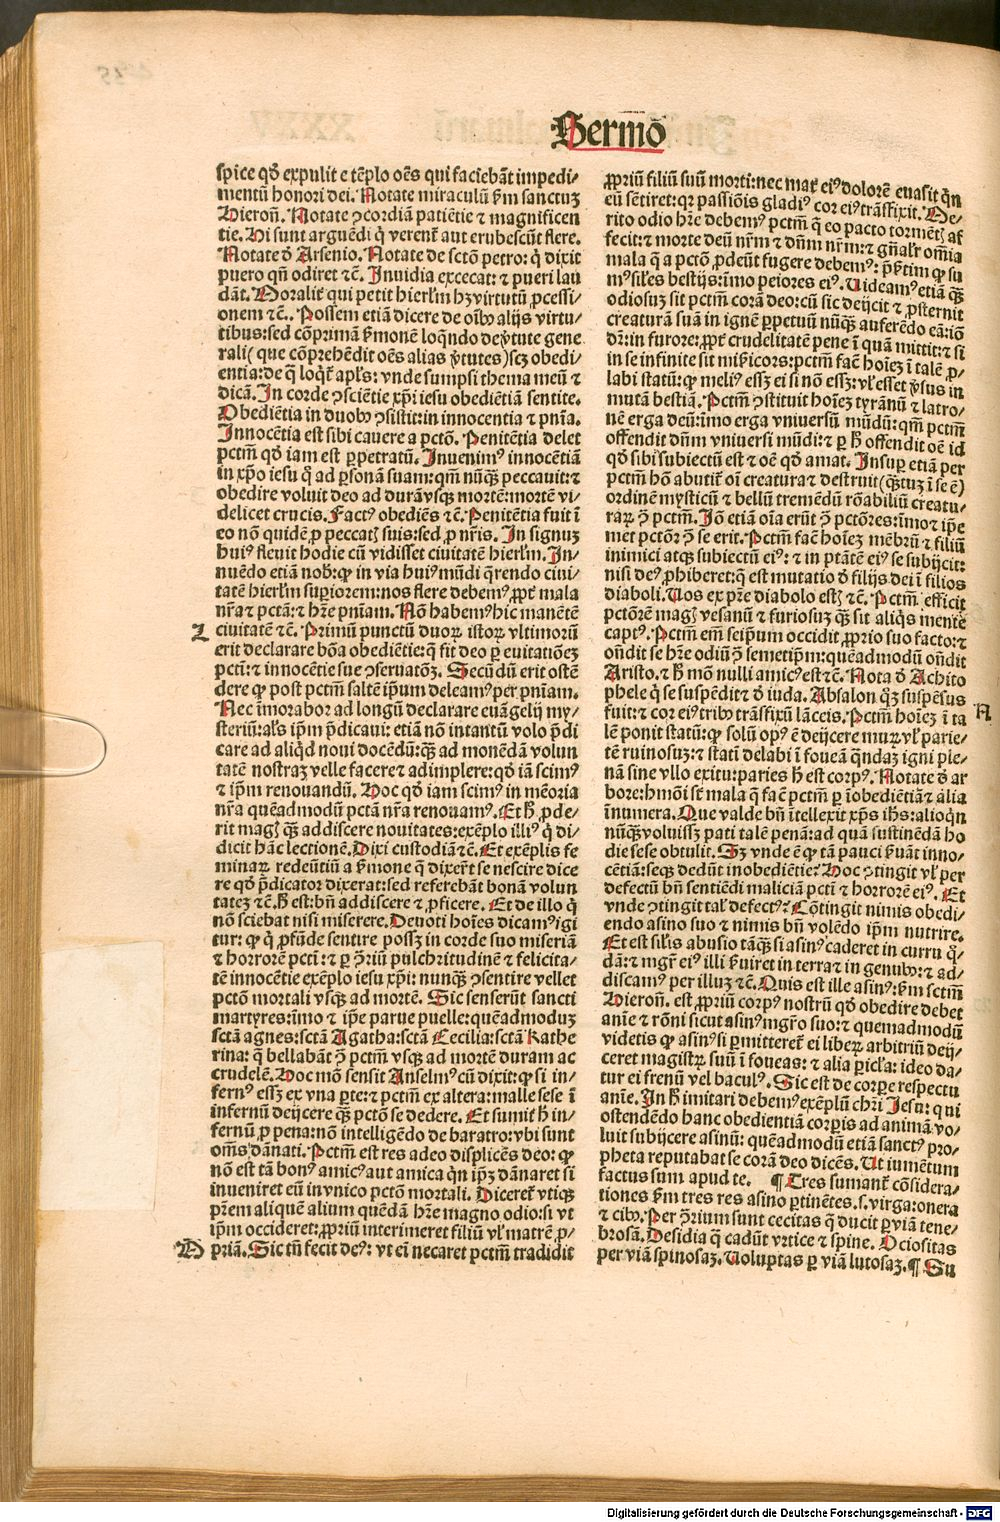 Sermō
spice qđ expulit e tēplo oēs qui faciebāt impedi⸗
mentū honori dei. Notate miraculū ẜm sanctuʒ
Hieroñ. Notate ꝯcordiā patiētie ⁊ magnificen
tie. Hi sunt arguēdi q̇ verent̃ aut erubescūt flere.
Notate đ Arsenio. Notate de sctō petro: q̇ dixit
puero qñ odiret ⁊c̄. Inuidia excecat: ⁊ pueri lau
dāt. Moralit̃ qui petit hierl̄m hʒ virtutū ꝓcessi⸗
onem ⁊c̄.. Possem etiā dicere de oībꝰ alijs virtu⸗
tibus: sed cōprimā ẜmonē loq̄ndo de ṽtute gene
rali( que cōprehēdit oēs alias ṽtutes) scʒ obedi⸗
entia: de q̄ loq̇t̃ apl̄s: vnde sumpsi thema meū ⁊
dicā. In corde ꝯsciētie xp̄i iesu obediētiā sentite.
Obediētia in duobꝰ ꝯsistit: in innocentia ⁊ pn̄ia.
Innocētia est sibi cauere a pctō. Penitētia delet
pctm̄ qđ iam est ꝑpetratū. Inuenimꝰ innocētiā
in xp̄o iesu q̇ ad ꝑsonā suam: qm̄ nūq̄ʒ peccauit: ⁊
obedire voluit deo ad durā vsqʒ mortē: mortē vi⸗
delicet crucis. Factꝰ obediēs ⁊c̄. Penitētia fuit ī
eo nō quidē ꝓ peccatꝭ suis: sed ꝓ nr̄is. In signuʒ
huiꝰ fleuit hodie cū vidisset ciuitatē hierl̄m. In⸗
nuēdo etiā nob̄: ꝙ in via huiꝰ mūdi q̄rendo ciui⸗
tatē hierl̄m suꝑiorem: nos flere debemꝰ ꝓpt̃ mala
nr̄a ⁊ pctā: ⁊ hr̄e pn̄iam. Nō habemꝰ hic manētē
L ciuitatē ⁊c̄. Primū punctū duoꝝ istoꝝ vltimorū
erit declarare bōa obediētie: q̄ fit deo ꝑ euitatiōeʒ
pcti: ⁊ innocētie sue ꝯseruatōʒ. Secūdū erit ostē
dere ꝙ post pctm̄ saltē ip̄um deleamꝰ per pn̄iam.
Nec īmorabor ad longū declarare euāgelij my⸗
steriū: al̄s ip̄m p̄dicaui: etiā nō intantū volo p̄di
care ad aliqđ noui docēdū: q̄ʒ ad monēdā volun
tatē nostraʒ velle facere ⁊ adimplere: qđ iā scimꝰ
⁊ ip̄m renouandū. Hoc qđ iam scimꝰ in mēoria
nr̄a quēadmodū pctā nr̄a renouamꝰ. Et ħ ꝓde⸗
rit magꝭ q̄ʒ addiscere nouitates: exēplo illiꝰ q̇ di⸗
dicit hāc lectionē. Dixi custodiā ⁊c̄. Et exēplis fe
minaꝝ redeūtiū a ẜmone q̄ dixer̄t se nescire dice
re qđ p̄dicator dixerat: sed referebāt bonā volun
tateʒ ⁊c̄. ħ est: bn̄ addiscere ⁊ ꝓficere. Et de illo q̇
nō sciebat nisi miserere. Deuoti hoīes dicamꝰ igi
tur: ꝙ q̇ ꝓfūde sentire possʒ in corde suo miseriā
⁊ horrorē pcti: ⁊ ꝑ ꝯ̄riū pulchritudinē ⁊ felicita⸗
tē innocētie exēplo iesu xp̄i: nunq̄ʒ ꝯsentire vellet
pctō mortali vsqʒ ad mortē. Sic senserūt sancti
martyres: īmo ⁊ ip̄e parue puelle: quēadmoduʒ
sctā agnes: sctā Agatha: sctā Cecilia: sctā Kathe
rina: q̄ bellabāt ꝯ̄ pctm̄ vsqʒ ad mortē duram ac
crudelē. Hoc mō sensit Anselmꝰ cū dixit: ꝙ si in⸗
fernꝰ essʒ ex vna ꝑte: ⁊ pctm̄ ex altera: malle sese ī
infernū deijcere q̄ʒ pctō se dedere. Et sumit̃ ħ in⸗
fernū ꝓ pena: nō intelligēdo de baratro: vbi sunt
om̄s dānati. Pctm̄ est res adeo displicēs deo: ꝙ
nō est tā bonꝰ amicꝰ aut amica q̄n ip̄ʒ dānaret si
inueniret eū in vnico pctō mortali. Diceret̃ vtiqʒ
pr̄em aliquē alium quēdā hr̄e magno odio: si vt
ip̄m occideret: ꝓpriū interimeret filiū vl̓ matrē ꝓ⸗
M priā. Sic tn̄ fecit deꝰ: vt ei̅ necaret pctm̄ tradidit
ꝓpriū filiū suū morti: nec mat̃ eiꝰ dolorē euasit q̄n
eū sētiret: qꝛ passiōis gladiꝰ cor eiꝰ trāsfixit. Me⸗
rito odio hr̄e debemꝰ pctm̄ q̄ eo pacto tormētꝭ af
fecit: ⁊ morte deū nr̄m ⁊ dn̄m nr̄m: ⁊ gn̄al̓r om̄ia
mala q̄ a pctō ꝓdeūt fugere debemꝰ: p̄ẜtim ꝙ su
mꝰ sil̓es bestijs: īmo peiores eiꝰ. Uideamꝰ etiā q̄ʒ
odiosuʒ sit pctm̄ corā deo: cū sic deijcit ⁊ ꝓsternit
creaturā suā in ignē ꝑpetuū nūq̄ʒ auferēdo eā: iō
dr̄: in furore: ꝓpt̃ crudelitatē pene ī quā mittit: ⁊ si
in se infinite sit mis̄icors: pctm̄ fac̄ hoīeʒ ī talē ꝓ⸗
labi statū: ꝙ meliꝰ essʒ ei si nō essʒ: vl̓ esset ṽsus in
mutā bestiā. Pctm̄ ꝯstituit hoīeʒ tyrānū ⁊ latro⸗
nē erga deū: īmo erga vniuersū mūdū: qm̄ pctm̄
offendit dn̄m vniuersi mūdi: ⁊ ꝑ ħ offendit oē id
qđ sibi subiectū est ⁊ oē qđ amat. Insuꝑ etiā per
pctm̄ hō abutit̃ oī creatura ⁊ destruit (q̄ʒtuʒ ī se ē)
ordinē mysticū ⁊ bellū tremēdū rōabiliū creatu⸗
raꝝ ꝯ̄ pctm̄. Iō etiā oīa erūt ꝯ̄ pctōres: īmo ⁊ ip̄e
met pctōr ꝯ̄ se erit. Pctm̄ fac̄ hoīeʒ mēbrū ⁊ filiū
inimici atqʒ subiectū eiꝰ: ⁊ in ptātē eiꝰ se subijcit:
nisi deꝰ ꝓhiberet: q̄ est mutatio đ filijs dei ī filios
diaboli. Uos ex pr̄e diabolo estꝭ ⁊c̄. Pctm̄ efficit
pctōrē magꝭ vesanū ⁊ furiosuʒ q̄ʒ sit aliq̇s mente
captꝰ. Pctm̄ em̄ seip̄um occidit ꝓprio suo facto: ⁊
oñdit se hr̄e odiū ꝯ̄ semetip̄m: quēadmodū oñdit
Aristo. ⁊ ħ mō nulli amicꝰ est ⁊c̄. Nota đ Achito
phele q̇ se suspēdit ⁊ đ iuda. Absalon q̇ʒ suspēsus
fuit: ⁊ cor eiꝰ tribꝰ trāsfixū lāceis. Pctm̄ hoīeʒ ī ta N
lē ponit statū: ꝙ solū opꝰ ē deijcere muꝝ vl̓ parie⸗
tē ruinosuʒ: ⁊ statī delabi ī foueā q̄ndaʒ igni ple⸗
nā sine vllo exitu: paries ħ est corpꝰ. Notate đ ar
bore: hmōi st̄ mala q̄ fac̄ pctm̄ ꝑ īobediētiā ⁊ alia
īnumera. Que valde bn̄ ītellexit xp̄s ih̄s: alioq̇n
nūq̄ʒ voluissʒ pati talē penā: ad quā sustinēdā ho
die sese obtulit. Sʒ vnde ē ꝙ tā pauci ẜuāt inno⸗
cētiā: seqʒ dedūt inobediētie? Hoc ꝯtingit vl̓ per
defectū bn̄ sentiēdi maliciā pcti ⁊ horrorē eiꝰ. Et
vnde ꝯtingit tal̓ defectꝰ? Cōtingit nimis obedi⸗
endo asino suo ⁊ nimis bn̄ volēdo ip̄m nutrire.
Et est sil̓is abusio tāq̄ʒ si asinꝰ caderet in curru q̇⸗
dā: ⁊ mgr̄ eiꝰ illi ẜuiret in terra ⁊ in genubꝰ: ⁊ ad⸗
discamꝰ per illuʒ ⁊c̄. Quis est ille asinꝰ: ẜm sctm̄
Hieroñ. est ꝓpriū corpꝰ nostrū qđ obedire debet
anīe ⁊ rōni sicut asinꝰ mgr̄o suo: ⁊ quemadmodū
videtis ꝙ asinꝰ si ꝑmitteret̃ ei liberꝝ arbitriū deij⸗
ceret magistꝝ suū ī foueas: ⁊ alia ꝑicl̓a: ideo da⸗
tur ei frenū vel baculꝰ. Sic est de corꝑe respectu
anīe. In ħ imitari debemꝰ exēplū chr̄i Iesu: qui
ostendēdo hanc obedientiā corꝑis ad animā vo⸗
luit subijcere asinū: quēadmodū etiā sanctꝰ pro⸗
pheta reputabat se corā deo dicēs. Ut iumētum
factus sum apud te. ¶ Tres sumant̃ cōsidera⸗
tiones ẜm tres res asino ꝑtinētes. s. virga: onera
⁊ cibꝰ. Per ꝯ̄rium sunt cecitas q̄ ducit ꝑ viā tene⸗
brosā. Desidia q̄ cadūt vrtice ⁊ spine. Ociositas
per viā spinosaʒ. Uoluptas ꝑ viā lutosaʒ. ¶ Su
Digitalisierung gefördert durch die Deutsche Forschungsgemeinschaft - DFG